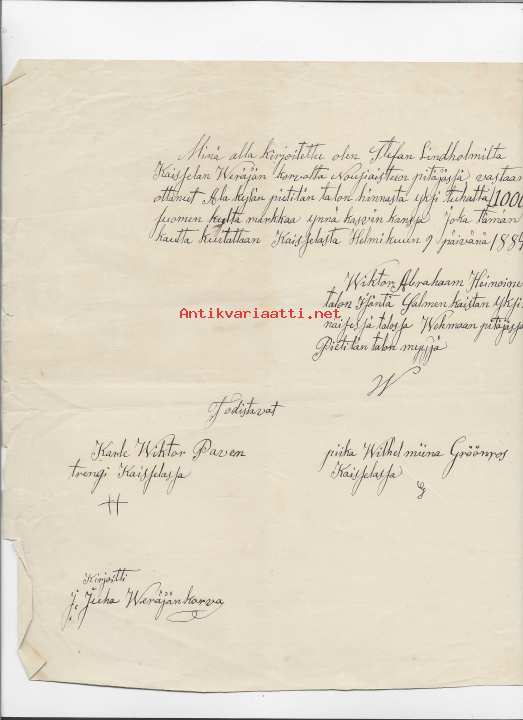 Minä alla kirjoitettu olen Stefan Lindholmilta
Kaisselan Weräjän korvalta Nousiaisten pitäjässä vastaan
ottanut Ala kylän pietilän talon hinnasta yksi tuhatta 1000
suomen markkaa ynnä kasvin kanssa Joka tämän
kautta kuitataan Kaisselasta Helmikuun 9 päivänä 188
Wiktor Abrahaam Heinoine
talon Isäntä Salmen kaistan yksi
näisessä talossa Wehmaan pitäjässä
Pietilän talon myyjä
W
Antikvariaatti.net
Todistavat
Karle Wiktor Paven
trengi Kaisselassa
piika Wilhelmiina Gröönros
Kaisselassa
Kirjoitti
j. Juha Weräjänkorva